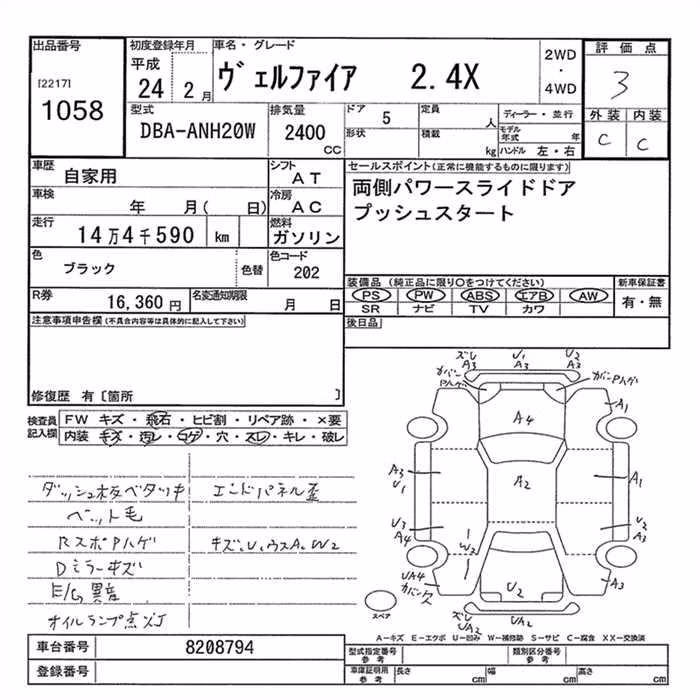 出品番号
[2217]
1058
初度登録年月
平成
24 2月
車名・グレード
ヴェルファイア 2.4X
2WD
・
4WD
評価点
3
外装 内装
C C
型式
DBA-ANH20W
排気量
2400
CC
ドア 5
形状
定員 人
積載 kg
ディーラー・並行
モデル年式 年
ハンドル 左・右
車歴 自家用
シフト AT
車検 年 月( 日)
冷房 AC
走行 14万4千590 km
燃料 ガソリン
色 ブラック 色替
色コード 202
R券 16,360円
名変通知期限 月 日
セールスポイント(正常に機能するものに限ります)
両側パワースライドドア
プッシュスタート
装備品 (純正品に限り〇をつけてください)
PS PW ABS エアB AW
SR ナビ TV カワ
新車保証書
有・無
後日品
注意事項申告欄(不具合内容等は具体的に記入して下さい)
修復歴 有〔箇所 〕
検査員記入欄
FW キズ・飛石・ヒビ割・リペア跡・×要
内装 キズ・汚レ・コゲ・穴・スレ・キレ・破レ
ダッシュ板ベタツキ エンドパネル歪
ペット毛
RスポPハゲ キズ、U、ウスA、W2
Dミラーキズ
E/G異音
オイルランプ点灯
ズレ A3 U1 A3 U2 A3
カバーPハゲ カバーPハゲ
A4 A1
A3 U1 A2 A1
U3 A4 W2 U2 A3
UA4 U2 A3
ズレ UA2 UA2
スペア
A−キズ E−エクボ U−凹み W−補修跡 S−サビ C−腐食 XX−交換済
車台番号 8208794
登録番号
型式指定番号 参考 類別区分番号 参考
車庫証明用 参考 長さ cm 幅 cm 高さ cm